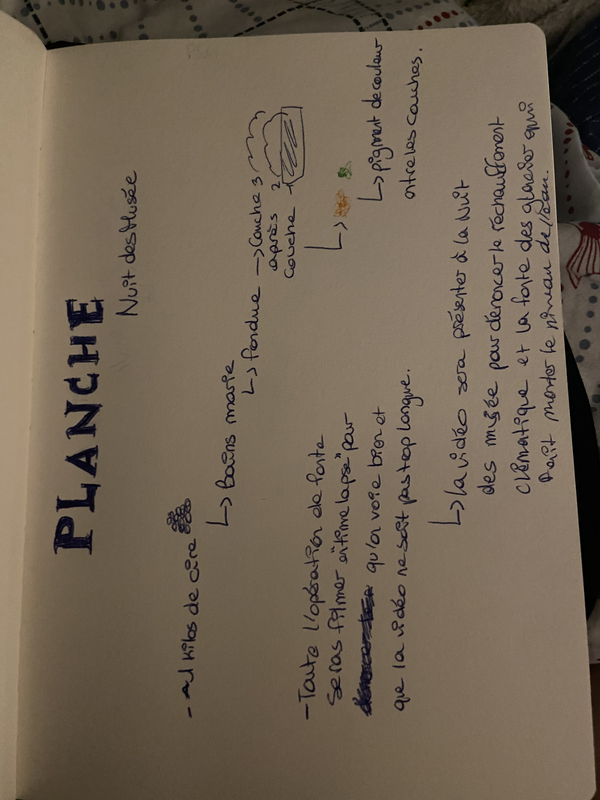 PLANCHE
Nuit des Musée
- 1 kilos de cire
↳ bains marie
↳ fondue → Couche 3
après 2
couche 1
↳
↳ pigment de couleur
entre les couches.
- Toute l'opération de fonte
seras filmer en "time lapse" pour
qu'on voie bien et
que la vidéo ne soit pas trop longue.
↳ la vidéo sera présenter à la Nuit
des musée pour dénoncer le réchauffement
climatique et la fonte des glacier qui
fait monter le niveau de l'eau.